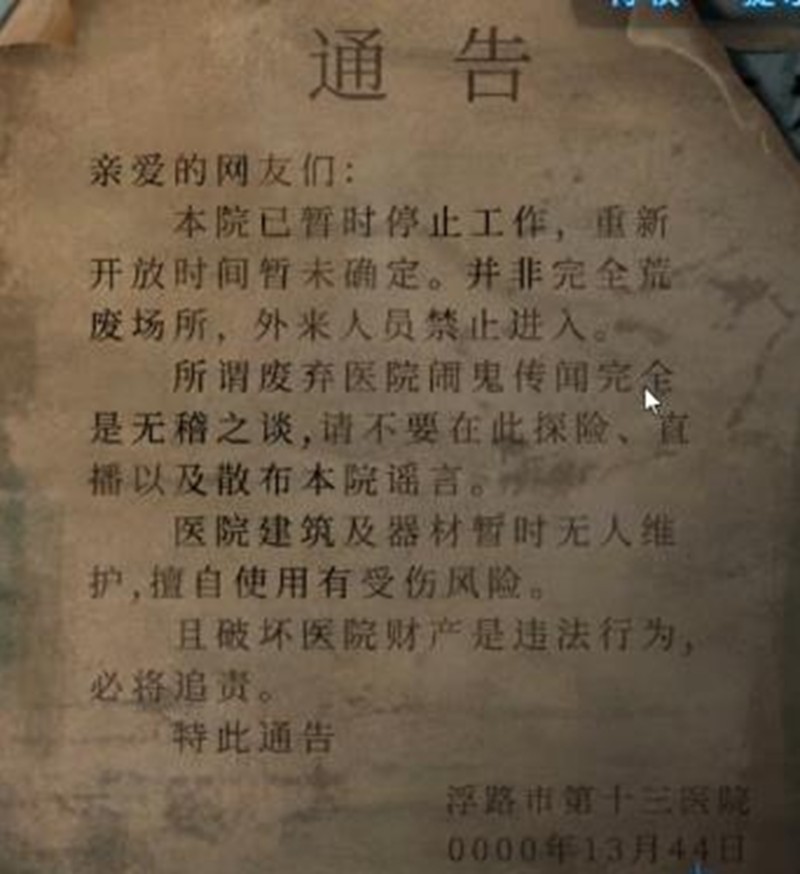 通告
亲爱的网友们：
本院已暂时停止工作，重新
开放时间暂未确定。并非完全荒
废场所，外来人员禁止进入。
所谓废弃医院闹鬼传闻完全
是无稽之谈,请不要在此探险、直
播以及散布本院谣言。
医院建筑及器材暂时无人维
护,擅自使用有受伤风险。
且破坏医院财产是违法行为,
必将追责。
特此通告
浮路市第十三医院
0000年13月44日